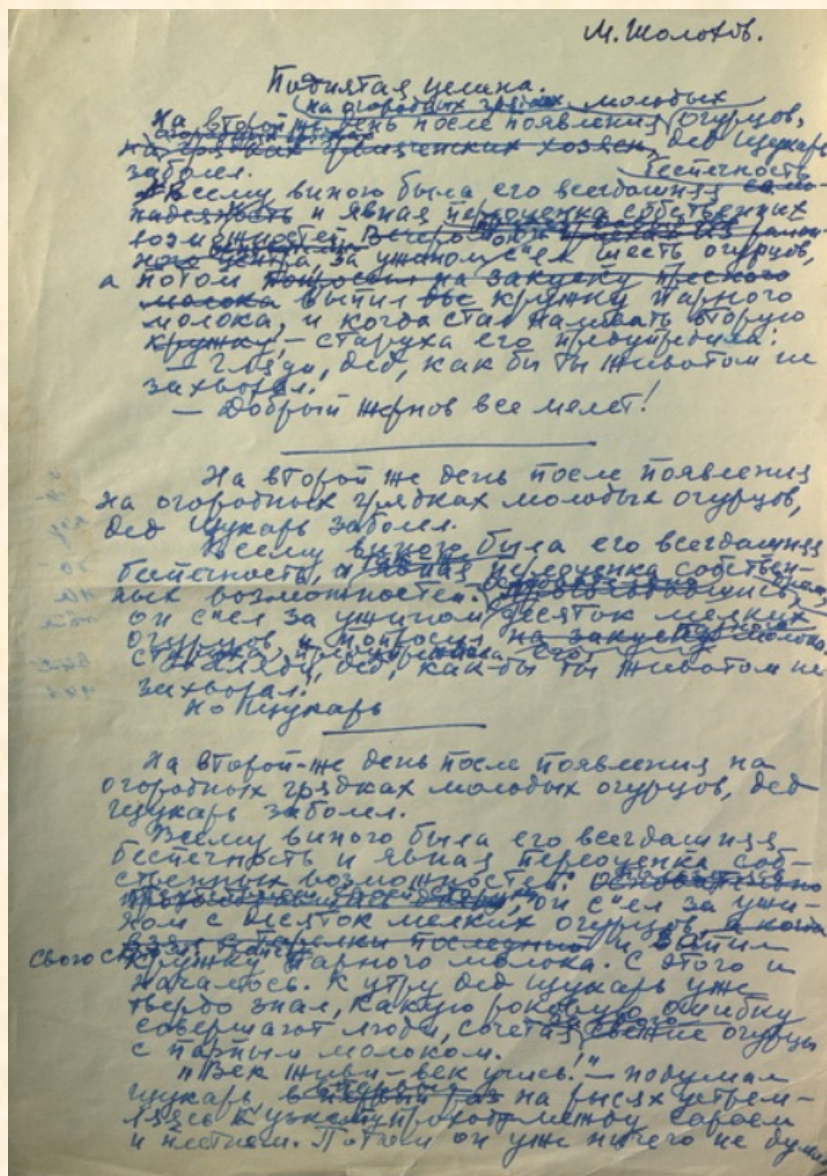 М. Шолохов.
Поднятая целина.
на огородных грядках молодых
На второй же день после появления огурцов,
на грядках хозяек, дед Щукарь
заболел.
беспечность
Всему виною была его всегдашняя само-
надеянность и явная переоценка собственных
возможностей. Вечером он
ного центра за ужином съел шесть огурцов,
а потом попросил на закуску пресного
молока выпил все кружку парного
молока, и когда стал наливать вторую
кружку, – старуха его предупредила:
– Гляди, дед, как бы ты животом не
захворал.
– Добрый жернов все мелет!
На второй же день после появления
на огородных грядках молодых огурцов,
дед Щукарь заболел.
Всему виною была его всегдашняя
беспечность, и явная переоценка собствен-
ных возможностей. Проголодавшись,
он съел за ужином десяток мелких
огурцов, и попросил на закуску молока.
Старуха предупреждала его
– Гляди, дед, как бы ты животом не
захворал!
Но Щукарь
На второй-же день после появления на
огородных грядках молодых огурцов, дед
Щукарь заболел.
Всему виною была его всегдашняя
беспечность и явная переоценка соб-
ственных возможностей: основательно
он съел за ужи-
ном с десяток мелких огурцов, а когда
взял с тарелки последний и запил
свого
кружку парного молока. С этого и
началось. К утру дед Щукарь уже
твердо знал, какую роковую ошибку
совершают люди, сочетая свежие огурцы
с парным молоком.
"Век живи – век учись!" – подумал
Щукарь, в первый раз на рысях устрем-
ляясь к узкому проходу между сараем
и плетнем. Потом он уже ничего не думал